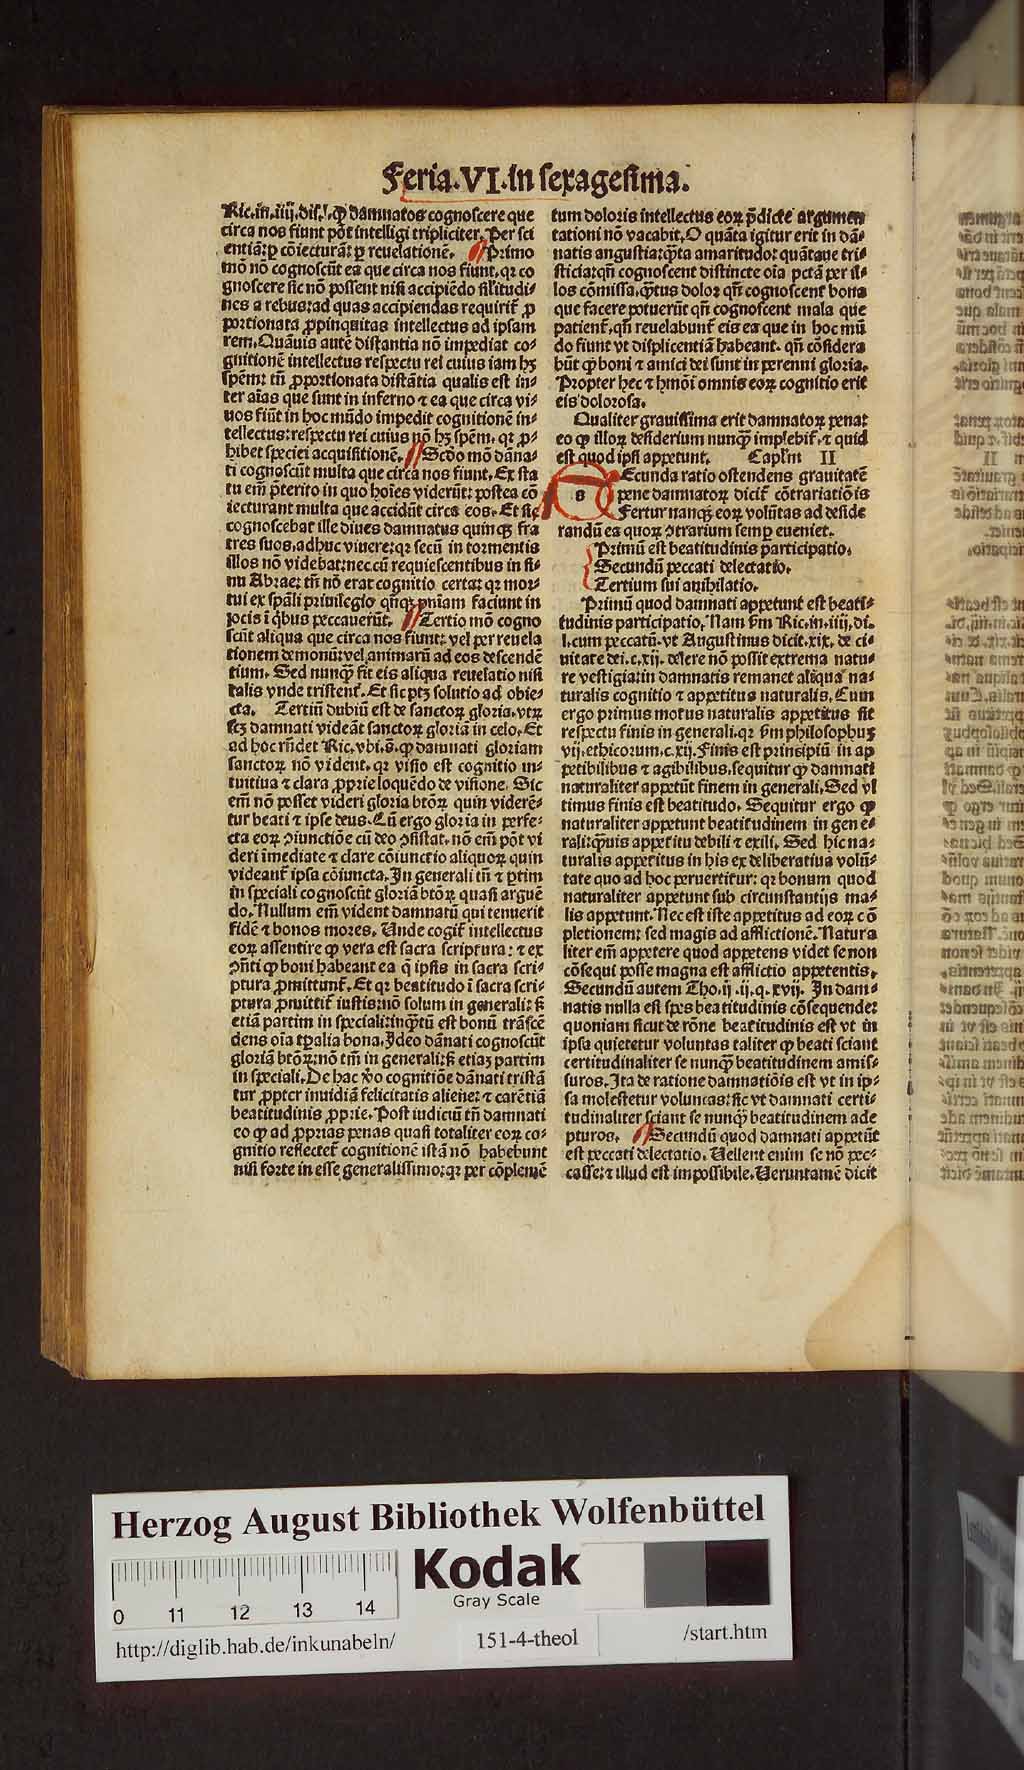 Feria.VI.in sexagesima.
Ric.in.iiij.dis.l.ꝙ damnatos cognoscere que
circa nos fiunt põt intelligi tripliciter. Per sci
entiã: ꝑ cõiecturã: ꝑ reuelationẽ. Primo
mõ nõ cognoscũt ea que circa nos fiunt. qꝛ co
gnoscere sic nõ possent nisi accipiẽdo silitudi-
nes a rebus: ad quas accipiendas requirit̃ ꝓ
portionata ꝓpinquitas intellectus ad ipsam
rem. Quãuis autẽ distantia nõ impediat co-
gnitionẽ intellectus respectu rei cuius iam hꝫ
spẽm: tñ ꝓportionata distãtia qualis est in-
ter aĩas que sunt in inferno ⁊ ea que circa vi-
uos fiũt in hoc mũdo impedit cognitionẽ in-
tellectus: respectu rei cuius nõ hꝫ spẽm. qꝛ ꝓ-
hibet speciei acquisitionẽ. Scðo mõ dãna-
ti cognoscũt multa que circa nos fiunt. Ex sta
tu em̃ p̃terito in quo hoĩes viderũt: postea cõ
iecturant multa que accidũt circa eos. Et sic
cognoscebat ille diues damnatus quinqꝫ fra
tres suos. adhuc viuere: qꝛ secũ in tormentis
illos nõ videbat: nec cũ requiescentibus in si-
nu Abrae: tñ nõ erat cognitio certa: qꝛ mor-
tui ex sp̃ali priuilegio qñqꝫ pñiam faciunt in
locis ĩ qͥbus peccauerũt. Tertio mõ cogno
scũt aliqua que circa nos fiunt: vel per reuela
tionem demonũ: vel animarũ ad eos descendẽ
tium. Sed nunqͣ̃ fit eis aliqua reuelatio nisi
talis vnde tristent̃. Et sic ptꝫ solutio ad obie-
cta. Tertiũ dubiũ est de sanctoꝝ gloria. vtꝝ
scꝫ damnati videãt sanctoꝝ gloriã in celo. Et
ad hoc rñdet Ric. vbi.s̃. ꝙ damnati gloriam
sanctoꝝ nõ vident. qꝛ visio est cognitio in-
tuitiua ⁊ clara ꝓprie loquẽdo de visione. Sic
em̃ nõ posset videri gloria btõꝝ quin viderẽ-
tur beati ⁊ ipse deus. Cũ ergo gloria in perfe-
cta eoꝝ ꝯiunctiõe cũ deo ꝯsistat. nõ em̃ põt vi
deri ĩmediate ⁊ clare cõiunctio aliquoꝝ quin
videant̃ ipsa cõiuncta. In generali tñ ⁊ ꝑtim
in speciali cognoscũt gloriã btõꝝ quasi arguẽ
do. Nullum em̃ vident damnatũ qui tenuerit
fidẽ ⁊ bonos mores. Unde cogit̃ intellectus
eoꝝ assentire ꝙ vera est sacra scriptura: ⁊ ex
ꝯñti ꝙ boni habeant ea q̃ ipsis in sacra scri-
ptura ꝓmittunt̃. Et qꝛ beatitudo ĩ sacra scri-
ptura ꝓmittit̃ iustis: nõ solum in generali: sꝫ
etiã partim in speciali: inqͣ̃tũ est bonũ trãscẽ
dens oĩa tp̃alia bona. Ideo dãnati cognoscũt
gloriã btõꝝ: nõ tm̃ in generali: sꝫ etiaꝫ partim
in speciali. De hac v̾o cognitiõe dãnati tristã
tur ꝓpter inuidiã felicitatis aliene: ⁊ carẽtiã
beatitudinis ꝓprie. Post iudiciũ tñ damnati
eo ꝙ ad ꝓprias penas quasi totaliter eoꝝ co-
gnitio reflectet̃ cognitionẽ istã nõ habebunt
nisi forte in esse generalissimo: qꝛ per cõplemẽ
tum doloris intellectus eoꝝ p̃dicte argumen
tationi nõ vacabit. O quãta igitur erit in dã-
natis angustia: qͣ̃ta amaritudo: quãtaue tri-
sticia: qñ cognoscent distincte oĩa pctã per il-
los cõmissa. qͣ̃tus dolor qñ cognoscent bona
que facere potuerũt qñ cognoscent mala que
patient̃. qñ reuelabunt̃ eis ea que in hoc mũ
do fiunt vt displicentiã habeant. qñ cõsidera
bũt ꝙ boni ⁊ amici dei sunt in perenni gloria.
Propter hec ⁊ hmõi omnis eoꝝ cognitio erit
eis dolorosa.
Qualiter grauissima erit damnatoꝝ pena:
eo ꝙ illoꝝ desiderium nunqͣ̃ implebit̃. ⁊ quid
est quod ipsi appetunt. Capĩm II
sEcunda ratio ostendens grauitatẽ
pene damnatoꝝ dicit̃ cõtrariatiõis
Fertur nanqꝫ eoꝝ volũtas ad deside
randũ ea quoꝝ ꝯtrarium semꝑ eueniet.
Primũ est beatitudinis participatio.
Secundũ peccati delectatio.
Tertium sui anihilatio.
Primũ quod damnati appetunt est beati-
tudinis participatio. Nam ẜm Ric.in.iiij.di.
l.cum peccatũ. vt Augustinus dicit.xix. de ci-
uitate dei.c.xij. delere nõ possit extrema natu-
re vestigia: in damnatis remanet aliqua na-
turalis cognitio ⁊ appetitus naturalis. Cum
ergo primus motus naturalis appetitus sit
respectu finis in generali. qꝛ ẜm philosophuꝫ
vij. ethicorum.c.xij. Finis est principiũ in ap
petibilibus ⁊ agibilibus. sequitur ꝙ damnati
naturaliter appetũt finem in generali. Sed vl
timus finis est beatitudo. Sequitur ergo ꝙ
naturaliter appetunt beatitudinem in gene-
rali: qͣ̃uis appetitu debili ⁊ exili. Sed hic na-
turalis appetitus in his ex deliberatiua volũ-
tate quo ad hoc peruertitur: qꝛ bonum quod
naturaliter appetunt sub circunstantijs ma-
lis appetunt. Nec est iste appetitus ad eoꝝ cõ
pletionem: sed magis ad afflictionẽ. Natura
liter em̃ appetere quod appetens videt se non
cõsequi posse magna est afflictio appetentis.
Secundũ autem Tho.ij.ij.q.xvij. In dam-
natis nulla est spes beatitudinis cõsequende:
quoniam sicut de rõne beatitudinis est vt in
ipsa quietetur voluntas taliter ꝙ beati sciant
certitudinaliter se nunqͣ̃ beatitudinem amis-
suros. Ita de ratione damnatiõis est vt in ip-
sa molestetur voluntas: sic vt damnati certi-
tudinaliter sciant se nunqͣ̃ beatitudinem ade
pturos. Secundũ quod damnati appetũt
est peccati delectatio. Uellent enim se nõ pec-
casse: ⁊ illud est impossibile. Ueruntamẽ dicit
Herzog August Bibliothek Wolfenbüttel
Kodak
Gray Scale
0 11 12 13 14
http://diglib.hab.de/inkunabeln/ 151-4-theol /start.htm